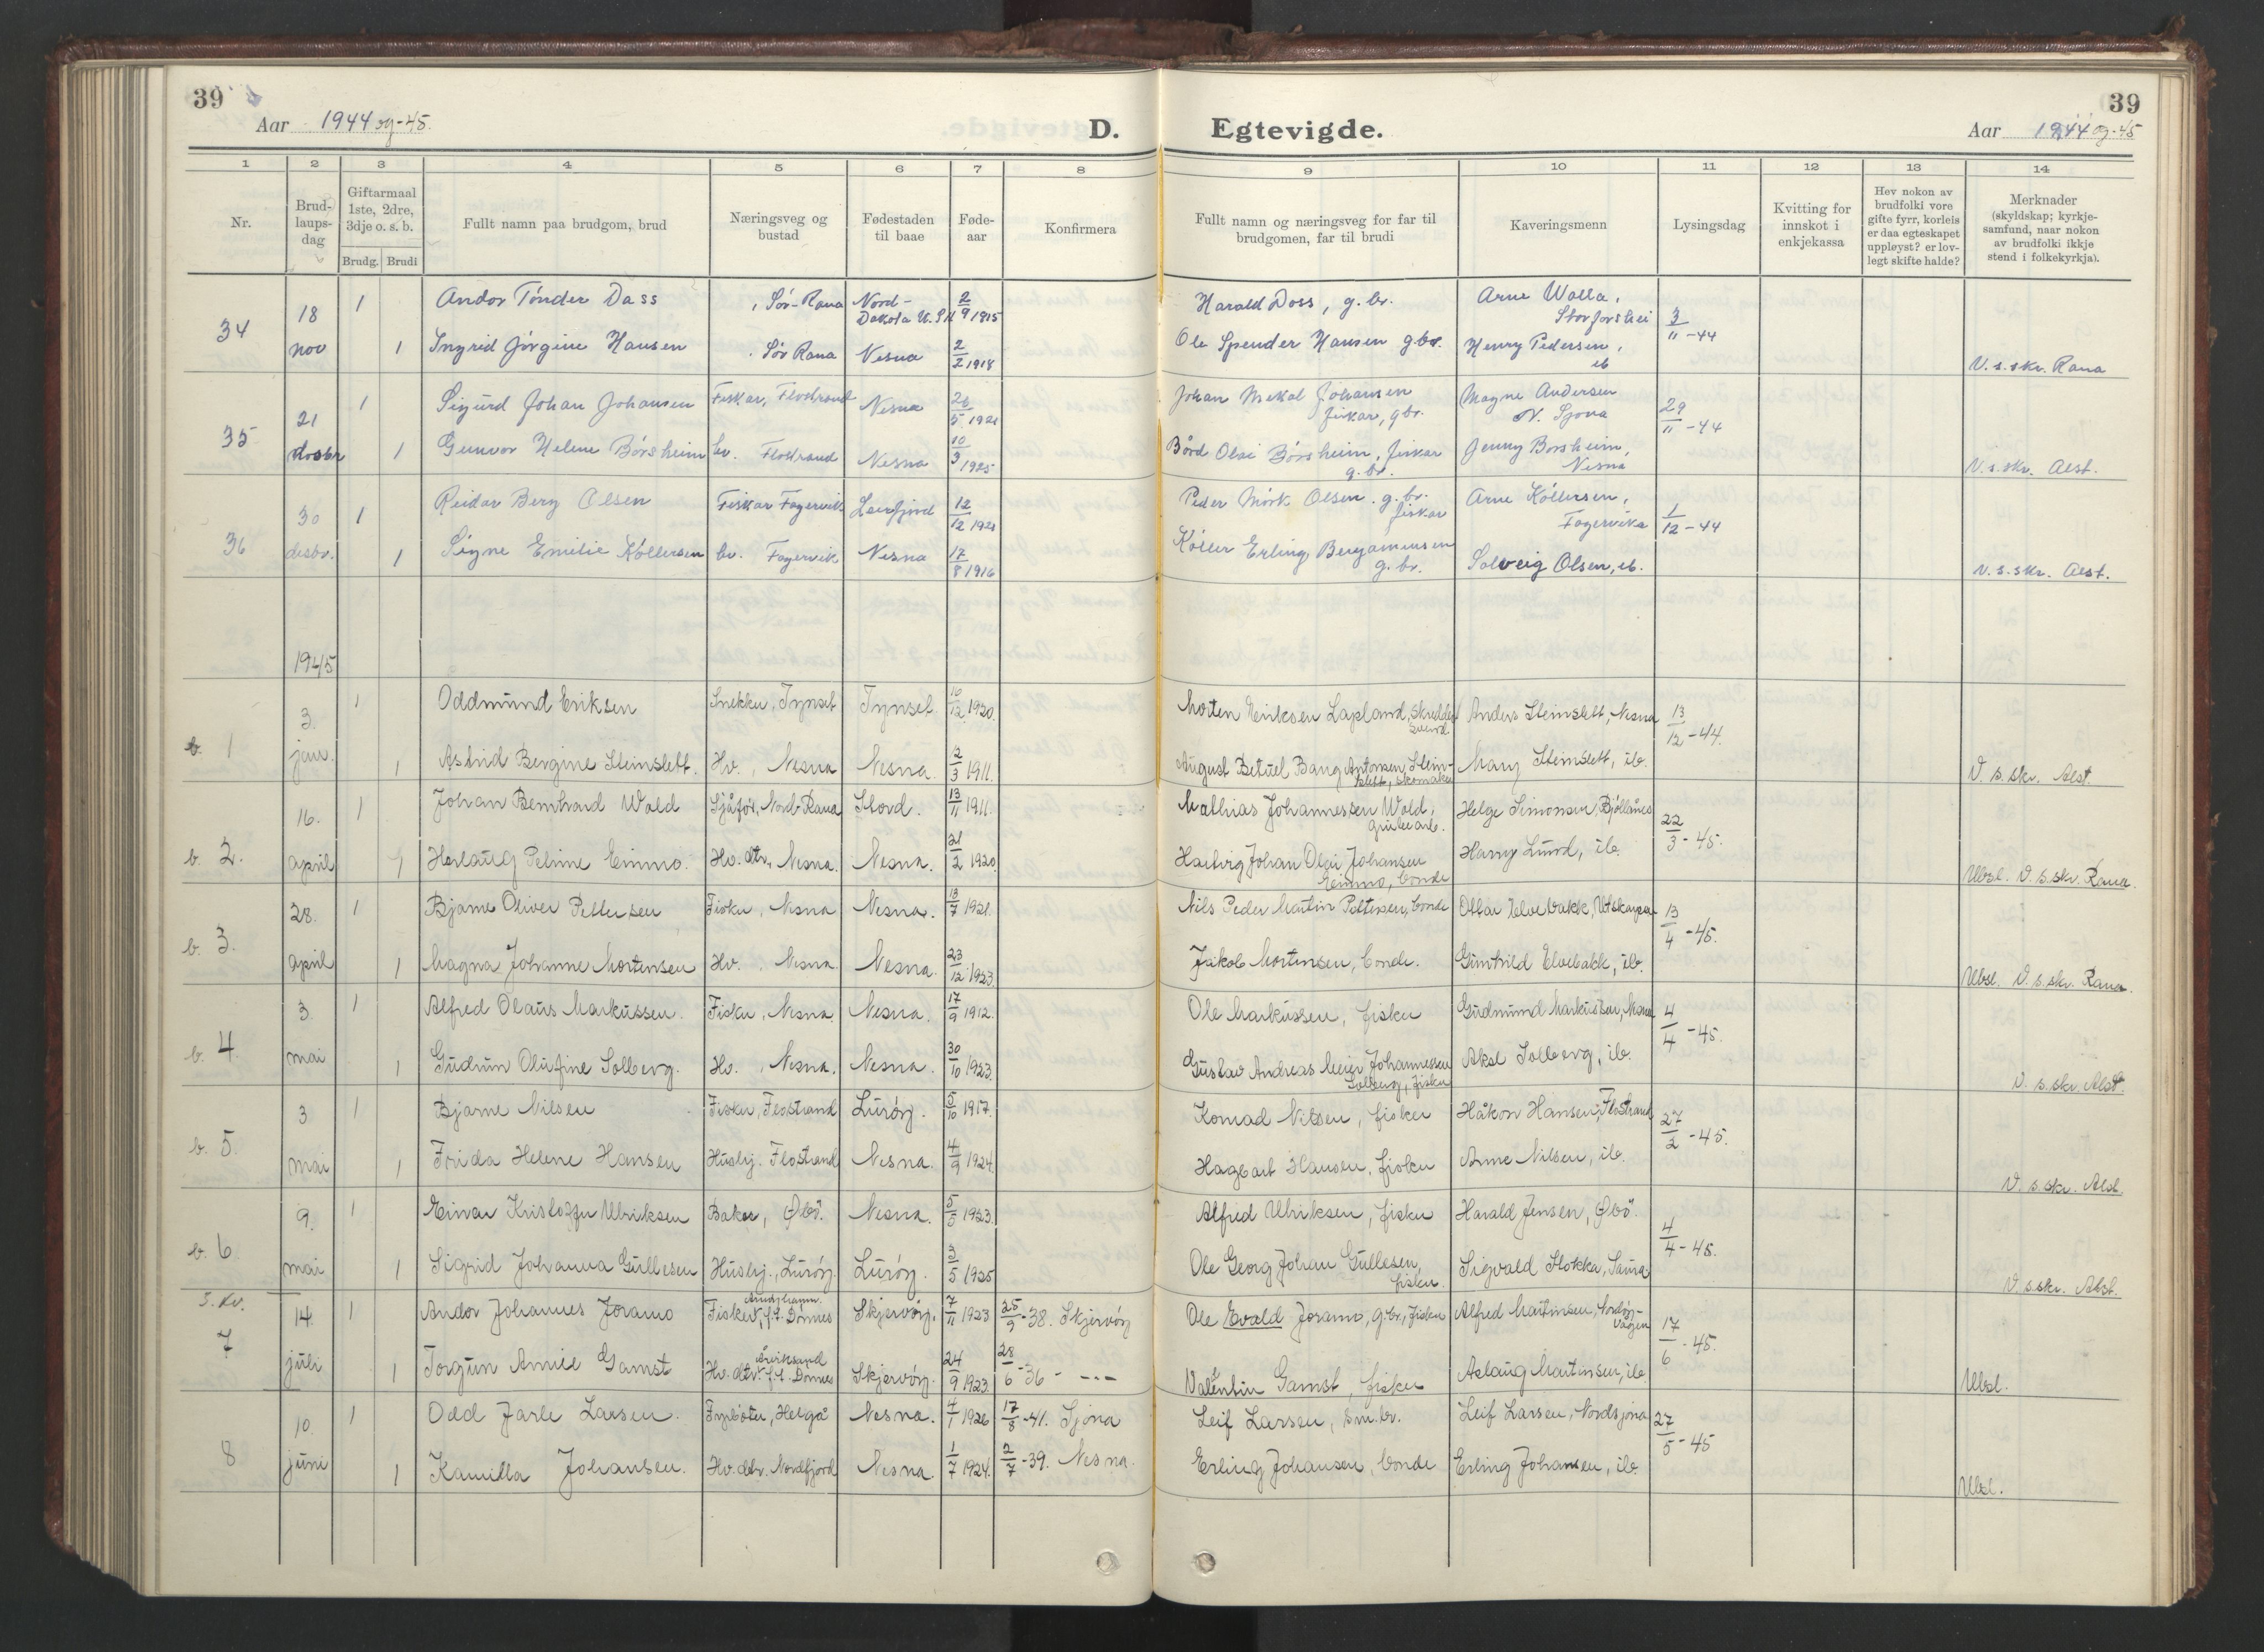 39
39
Aar 1944 og -45.
D.
Egtevigde.
Aar 1944 og -45
1 2 3 4 5 6 7 8 9 10 11 12 13 14
Nr.
Brud-
laups-
dag
Giftarmaal
1ste, 2dre,
3dje o. s. b.
Brudg. Brudi
Fullt namn paa brudgom, brud
Næringsveg og
bustad
Fødestaden
til baae
Føde-
aar
Konfirmera
Fullt namn og næringsveg for far til
brudgomen, far til brudi
Kaveringsmenn
Lysingsdag
Kvitting for
innskot i
enkjekassa
Hev nokon av
brudfolki vore
gifte fyrr, korleis
er daa egteskapet
uppløyst? er lov-
legt skifte halde?
Merknader
(skyldskap; kyrkje-
samfund, naar nokon
av brudfolki ikkje
stend i folkekyrkja).
34 18 nov 1 Andor Tønder Dass , Sør-Rana Nord-Dakota U.S.A. 2/9 1915 Harald Dass, g.br. Arne Wolla, Storforshei 3/11-44
1 Ingrid Jørgine Hansen . Sør Rana Nesna 2/2 1918 Ole Spender Hansen g.br. Henry Pedersen, ib V.s.skr. Rana
35 21 desbr 1 Sigurd Johan Johansen Fiskar, Flostrand Nesna 26/5 1921 Johan Mekal Johansen fiskar, gbr. Magne Andersen N. Sjona 29/11-44
1 Gunvor Helene Börsheim hv. Flostrand Nesna 10/3 1925 Börd Olai Börsheim, fiskar g.br. Jenny Borsheim, Nesna V.s.skr. Alst.
36 30 desbr. 1 Reidar Berg Olsen Fiskar Fagervik Leirfjord 12/12 1921 Peder Mörk Olsen. g.br. fiskar Arne Köllersen, Fagervika 1/12-44
1 Signe Emilie Köllersen hv. Fagervik Nesna 17/8 1916 Köller Erling Benjaminsen g.br. Solveig Olsen, ib. V.s.skr. Alst.
1945
b. 1 3. jan. 1 Oddmund Eriksen Snekker, Tynset Tynset 16/12 1920. Morten Eriksen Lapland, skredder Anders Steinslett, Nesna 13/12-44.
1 Astrid Bergine Steinslett. Hv., Nesna Nesna. 12/3 1911. August Betuel Bang Antonsen Stein-slett, skomaker Mary Steinslett, ib. V.s.skr. Alst
b. 2. 16. april 1 Johan Bernhard Wold Sjåfør, Nord-Rana Stord. 13/11 1911. Mathias Johannessen Wold, grubearb. Helge Simonsen, Bjöllånes 22/3-45.
1 Herlaug Petrine Einmo. Hv. dtr., Nesna. Nesna. 21/2 1920. Hartvig Johan Olai Johansen Einmo, bonde Harry Lund, ib. Ubsl. V.s.skr. Rana.
b. 3. 28. april 1 Bjarne Oliver Pettersen Fisker, Nesna Nesna. 13/7 1921. Nils Peder Martin Pettersen, bonde Ottar Elvebakk, Utskarpen 13/4-45.
1 Magna Johanne Mortensen Hv., Nesna. Nesna. 23/12 1923. Jakob Mortensen, bonde. Gunhild Elvebakk, ib. Ubsl. V.s.skr. Rana.
b. 4. 3. mai 1 Alfred Olaus Markussen. Fisker, Nesna. Nesna. 17/9 1912. Ole Markussen, fisker Gudmund Markussen, Nesna 4/4-45.
1 Gudrun Olufine Solberg. Hv., Nesna. Nesna. 30/10 1923. Gustav Andreas Meier Johannessen Solberg, fisker Aksel Solberg, ib. V.s.skr. Alst.
b. 5. 3 mai 1 Bjarne Nilsen Fisker, Flostrand Lurøy. 5/10 1917. Konrad Nilsen, fisker Håkon Hansen, Flostrand 27/2-45.
1 Frida Helene Hansen Hushj. Flostrand Nesna. 4/9 1924. Hagbart Hansen, fisker Anne Nilsen, ib. V.s.skr. Alst.
b. 6 9. mai 1 Einar Kristoffer Ulriksen Baker, Øbö. Nesna. 5/5 1923. Alfred Ulriksen, fisker Harald Jensen, Øbö. 4/4-45.
1 Sigrid Johanna Gullesen Hushj., Lurøy. Lurøy. 3/5 1925 Ole Georg Johan Gullesen, fisker. Sigvald Stokka, Sauna. V.s.skr. Alst.
S. kv. 7 14. juli 1 Andor Johannes Joramo Fisker, f.t. Dønnes Skjervøy. 7/11 1923 25/9-38. Skjervøy Ole Evald Joramo, g.br., fisker Alfred Martinsen, Nordøy-vågen 17/6-45.
1 Torgun Annie Gamst Hv. dtr. f.t. Dønnes Skjervøy. 24/9 1923. 28/6-36 - --- Valentin Gamst, fisker Aslaug Martinsen, ib. Ubsl.
8 10. juni 1 Odd Jarle Larsen. Fyrbøter, Helgå Nesna. 4/1 1926 17/8-41. Sjona Leif Larsen, sm.br. Leif Larsen, Nordsjona 27/5-45
1 Kamilla Johansen. Hv. dtr. Nordfjord Nesna. 1/7 1924. 2/7-39. Nesna. Erling Johansen, bonde Erling Johansen, ib. Ubsl.